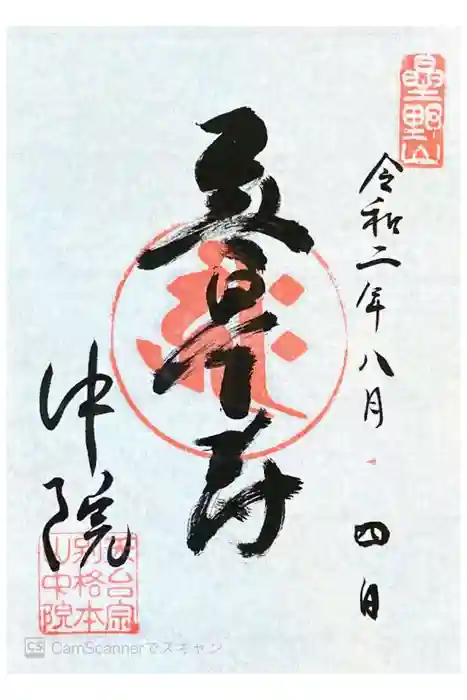 星野山
令和二年八月四日
無量寿
中院
天台宗
別格本
山中院
CS CamScannerでスキャン